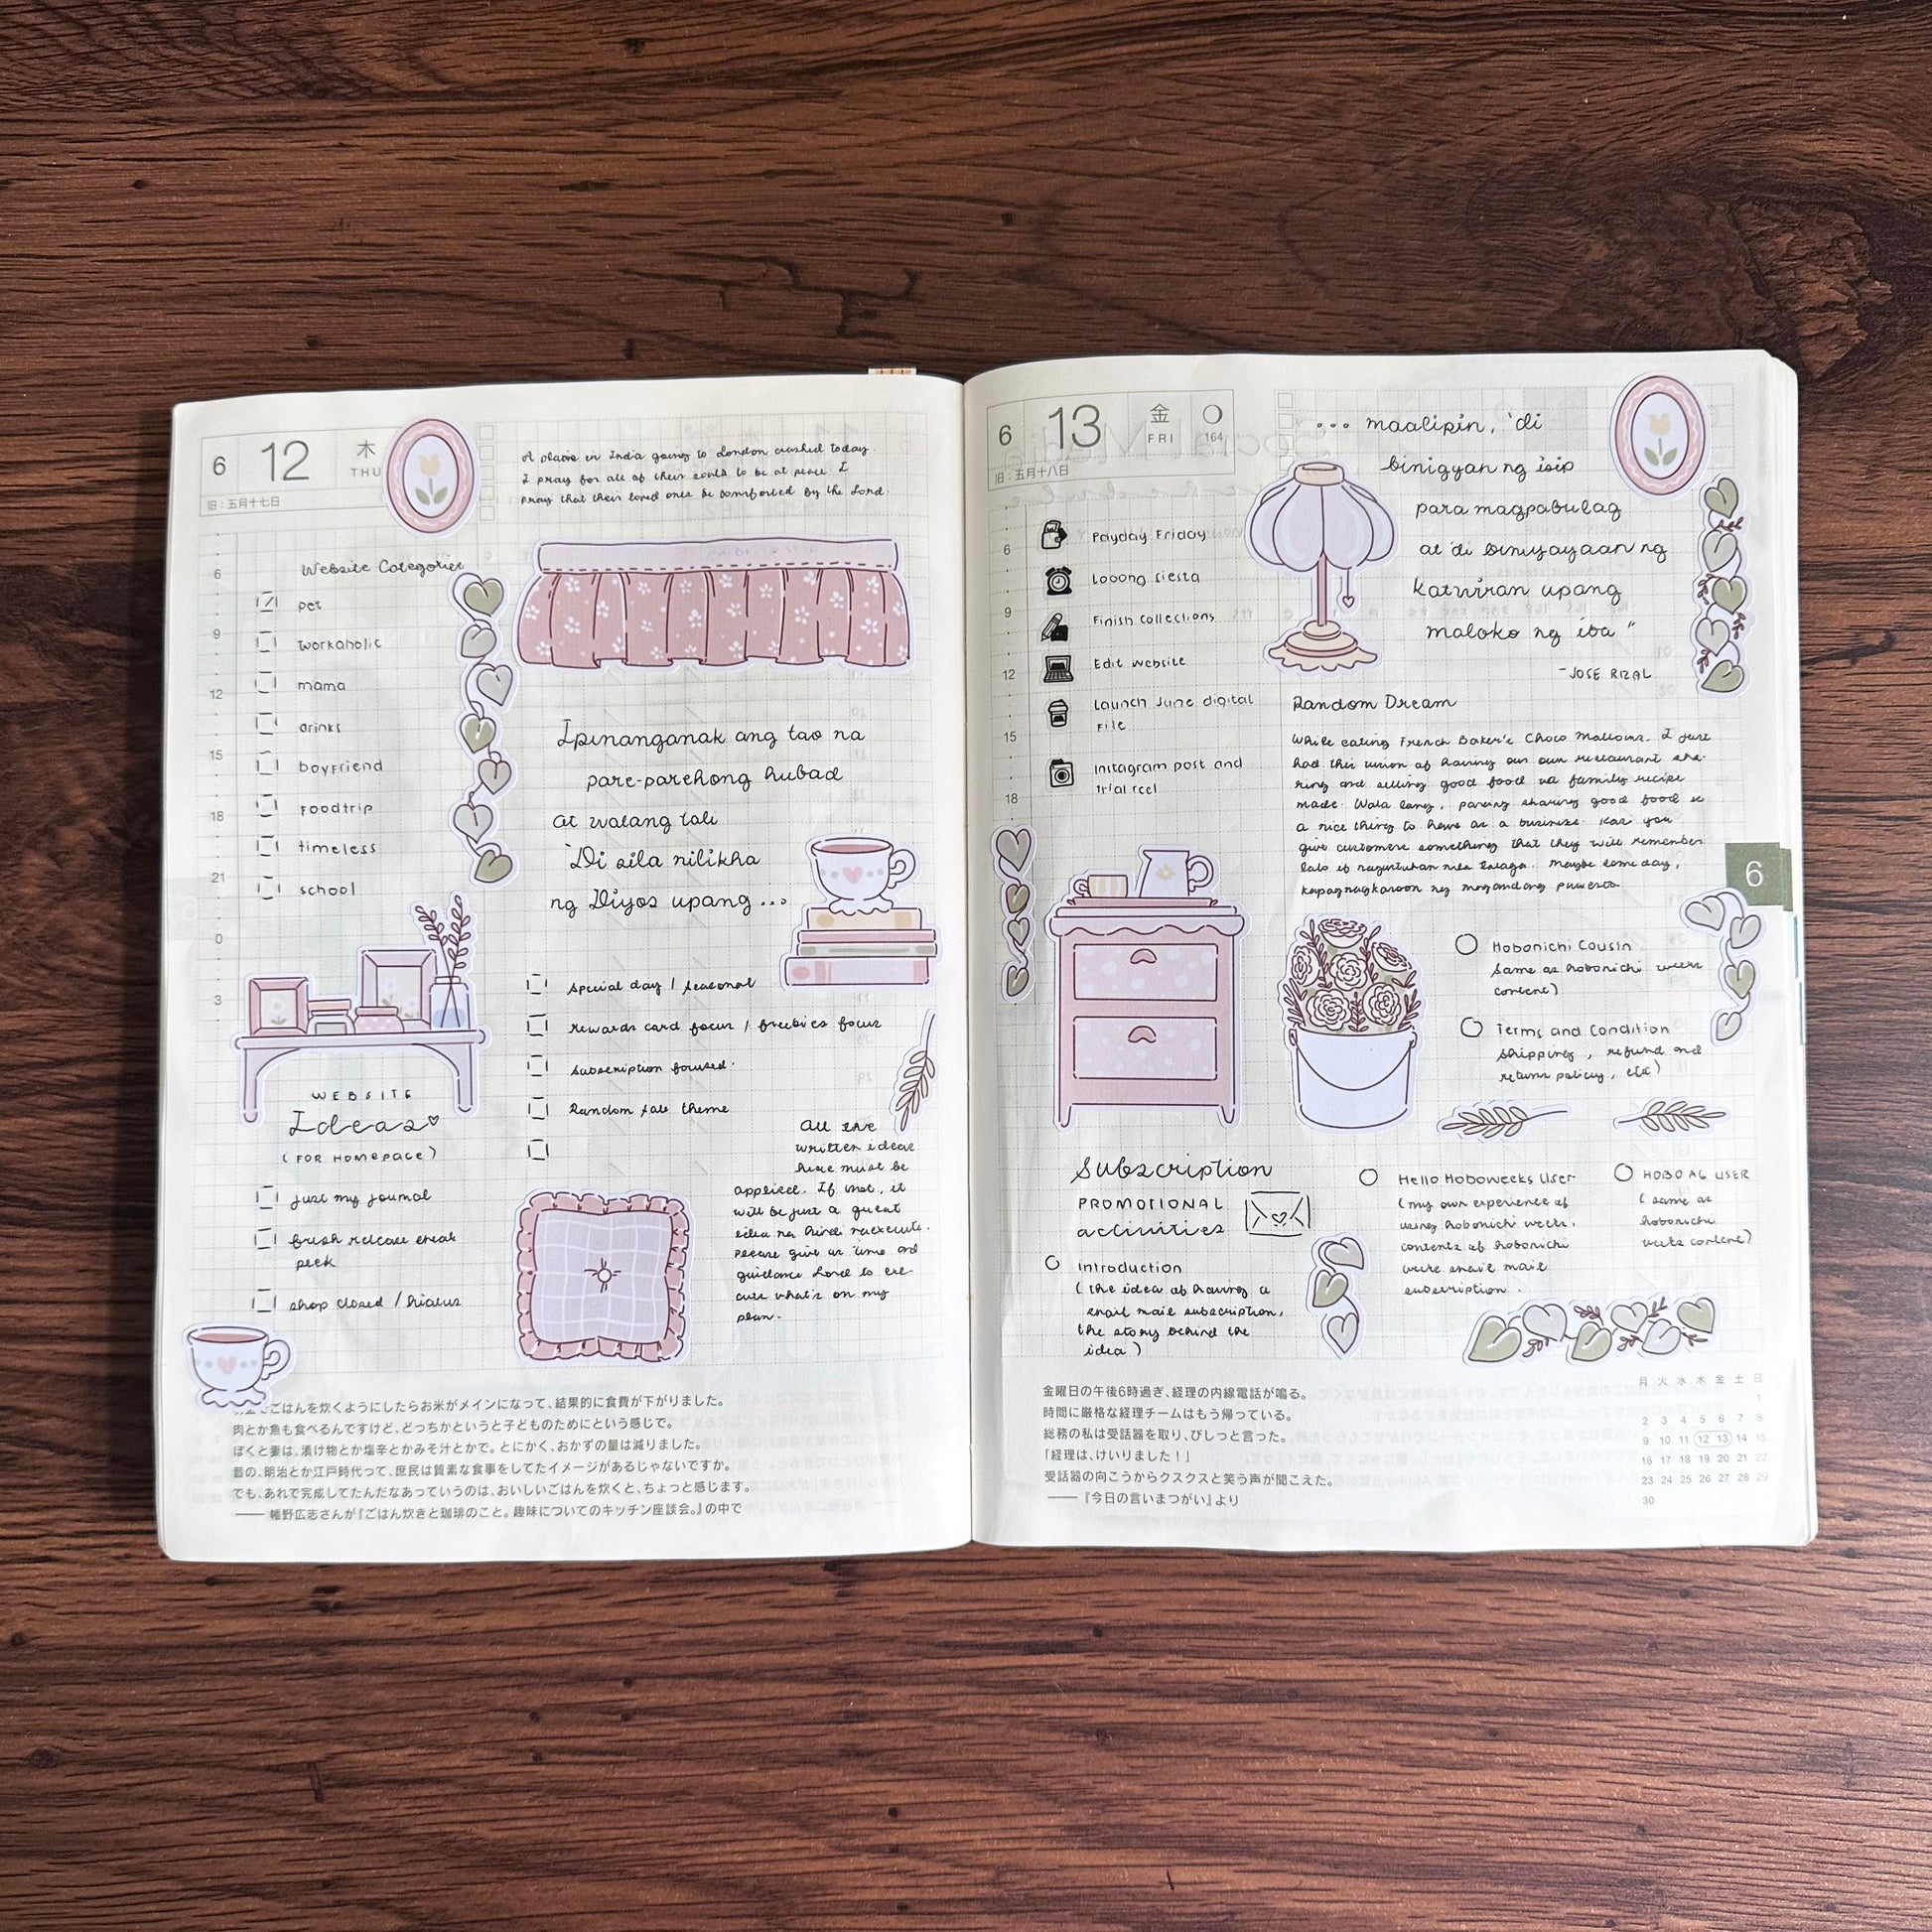 6 12 木
THU
旧：五月十七日
A plane in India going to London crashed today.
I pray for all of their souls to be at peace. I
pray that their loved ones be comforted by the Lord.
Website Categories
pet
workaholic
mama
drinks
boyfriend
foodtrip
timeless
school
6
9
12
15
18
21
0
3
Ipinanganak ang tao na
pare-parehong hubad
at walang tali
'Di sila nilikha
ng Diyos upang ...
special day / seasonal
rewards card focus / freebies focus
subscription focused.
Random sale theme
WEBSITE
Ideas
(FOR HOMEPAGE)
just my journal
fresh release sneak
peek
shop closed / hiatus
All the
written ideas
here must be
applied. If not, it
will be just a great
idea na hindi naexecute.
Please give us time and
guidance Lord to exe-
cute what's on my
plan.
ごはんを炊くようにしたらお米がメインになって、結果的に食費が下がりました。
肉とか魚も食べるんですけど、どっちかというと子どものためにという感じで。
ぼくと妻は、漬け物とか塩辛とかみそ汁とかで。とにかく、おかずの量は減りました。
昔の、明治とか江戸時代って、庶民は質素な食事をしてたイメージがあるじゃないですか。
でも、あれで完成してたんだなあっていうのは、おいしいごはんを炊くと、ちょっと感じます。
—— 幡野広志さんが『ごはん炊きと珈琲のこと。趣味についてのキッチン座談会。』の中で
6 13 金
FRI 164
旧：五月十八日
... maalipin, 'di
binigyan ng isip
para magpabulag
at 'di biniyayaan ng
katwiran upang
maloko ng iba "
-JOSE RIZAL
6
9
12
15
18
Payday Friday
Looong siesta
Finish collections
Edit website
Launch June digital
file
Instagram post and
trial reel
Random Dream
While eating French Baker's Choco Mallows. I just
had this vision of having our own restaurant sha-
ring and selling good food na family recipe
made. Wala lang, parang sharing good food is
a nice thing to have as a business. Kas you
give customers something that they will remember
lalo if nagustuhan nila talaga. Maybe some day,
kapag nagkaroon ng magandang puwesto.
6
Hobonichi Cousin
same as hobonichi weeks
content)
Terms and Condition
shipping, refund and
return policy, etc)
Subscription
PROMOTIONAL
activities
Introduction
(the idea of having a
snail mail subscription,
the story behind the
idea)
Hello Hoboweeks User
(my own experience of
using hobonichi weeks.
contents of hobonichi
weeks snail mail
subscription.
HOBO A6 USER
(same as
hobonichi
weeks content)
金曜日の午後6時過ぎ、経理の内線電話が鳴る。
時間に厳格な経理チームはもう帰っている。
総務の私は受話器を取り、びしっと言った。
「経理は、けいりました！」
受話器の向こうからクスクスと笑う声が聞こえた。
——『今日の言いまつがい』より
月 火 水 木 金 土 日
1
2 3 4 5 6 7 8
9 10 11 12 13 14 15
16 17 18 19 20 21 22
23 24 25 26 27 28 29
30